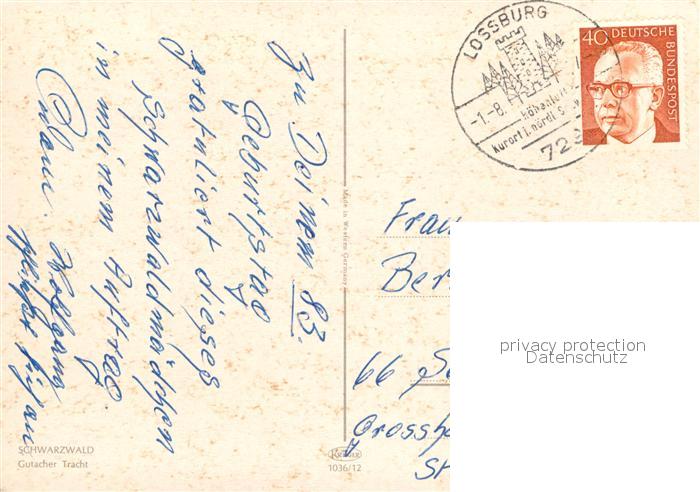 Zu Deinem 83.
Geburtstag
gratuliert dieses
Schwarzwaldmädchen
in meinem Auftrag
Wolfgang
SCHWARZWALD
Gutacher Tracht
Made in Western Germany
KRÜGER
1036/12
LOSSBURG
-1.-8.
höhenluft
kurort i. nördl. S
72
40 DEUTSCHE
BUNDESPOST
Frau
Ber
66 S
Grossh
St
privacy protection
Datenschutz